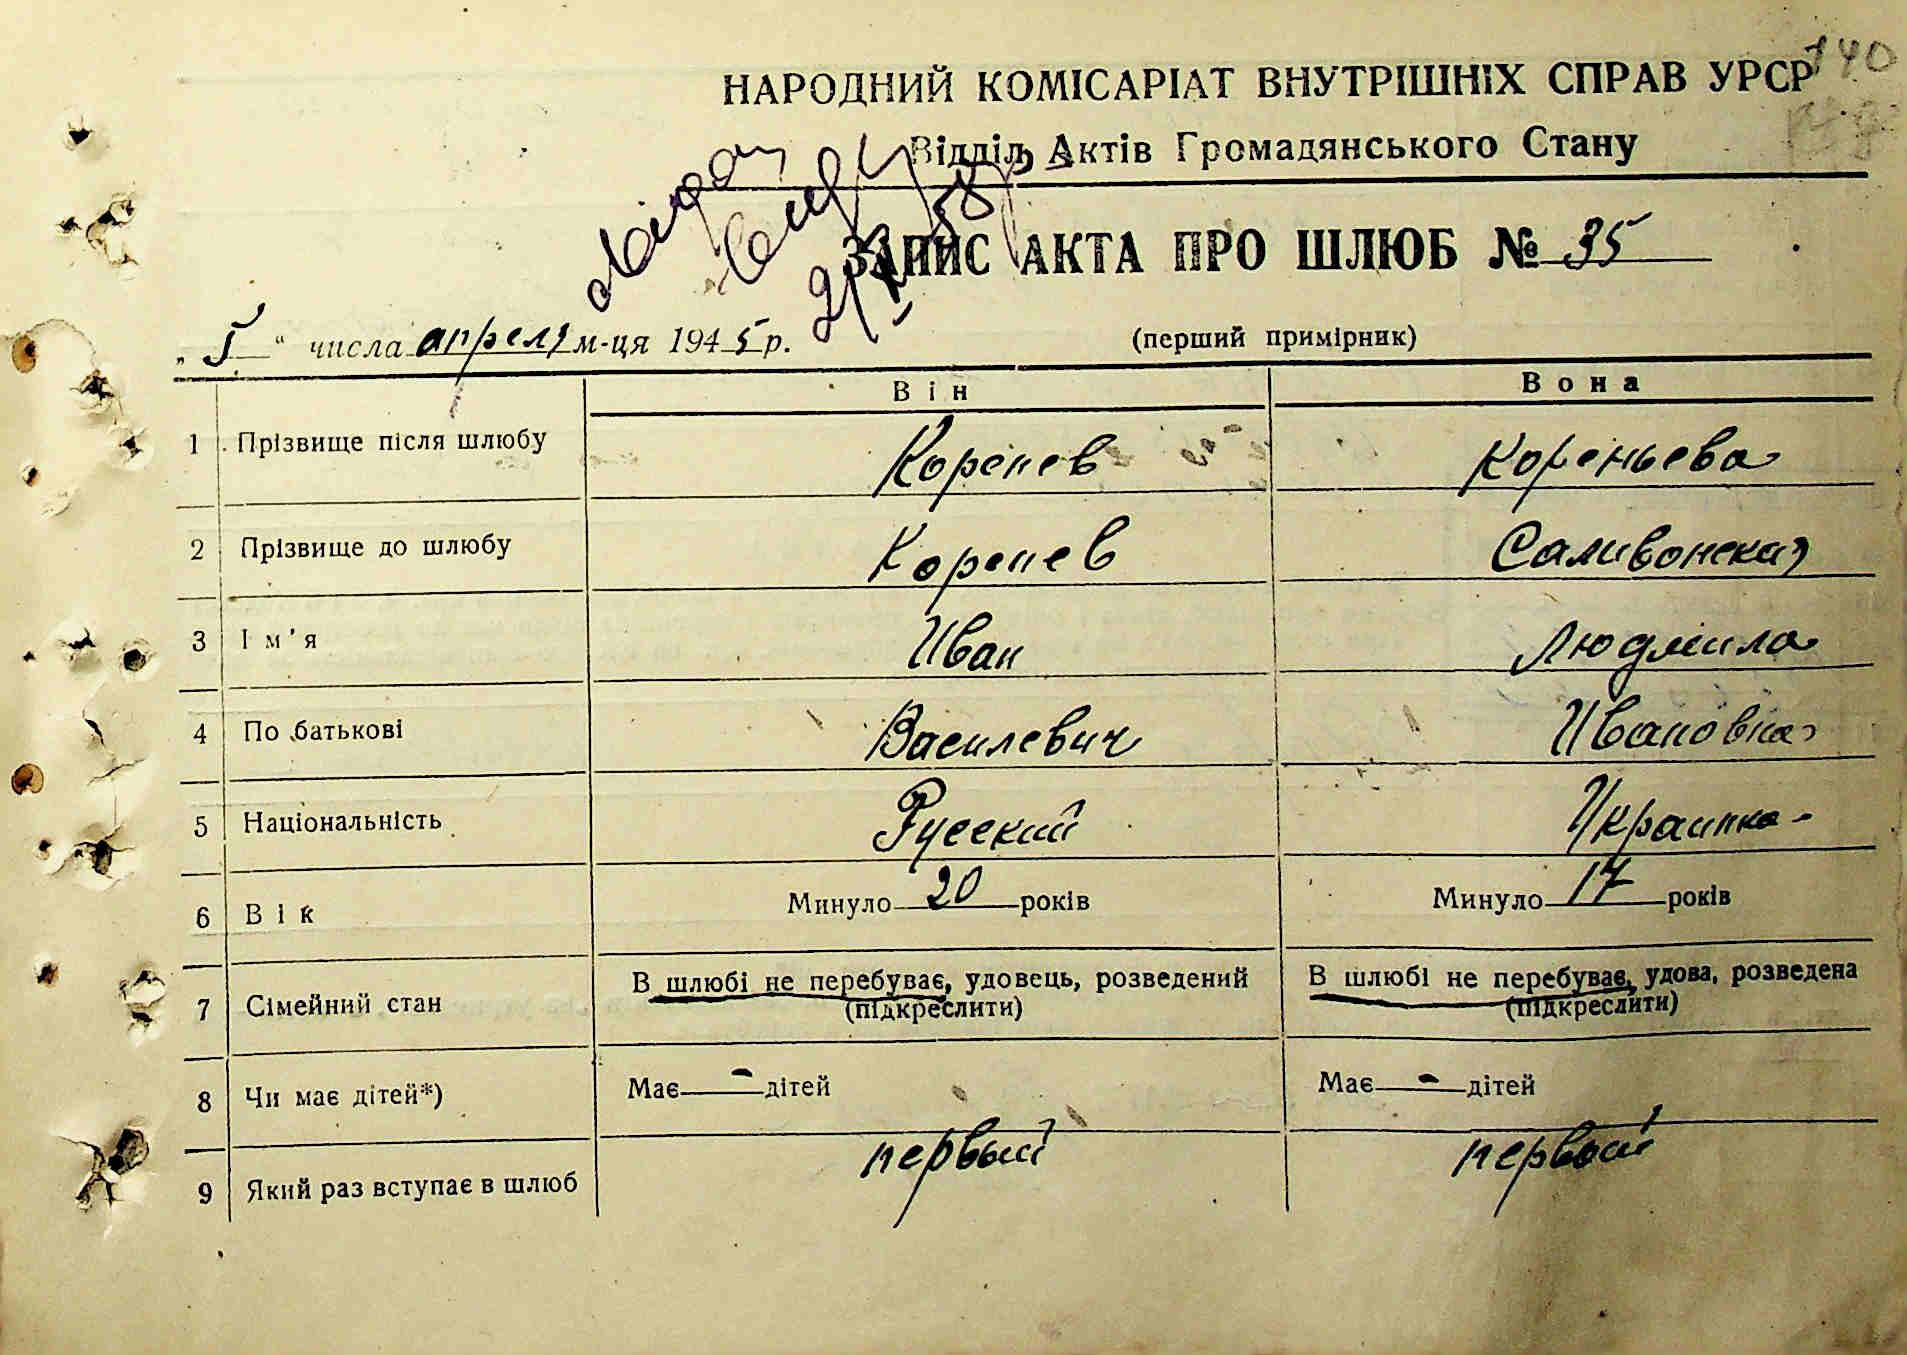 140
НАРОДНИЙ КОМІСАРІАТ ВНУТРІШНІХ СПРАВ УРСР
Відділ Актів Громадянського Стану
ЗАПИС АКТА ПРО ШЛЮБ № 35
„5“ числа апреля м-ця 1945 р. (перший примірник)
Він Вона
1 Прізвище після шлюбу Коренев Кореньева
2 Прізвище до шлюбу Коренев Саливонская
3 Ім'я Иван Людмила
4 По батькові Василевич Ивановна
5 Національність Русский Украинка
6 Вік Минуло 20 років Минуло 17 років
7 Сімейний стан В шлюбі не перебуває, удовець, розведений В шлюбі не перебуває, удова, розведена
(підкреслити) (підкреслити)
8 Чи має дітей*) Має - дітей Має - дітей
9 Який раз вступає в шлюб первый первый